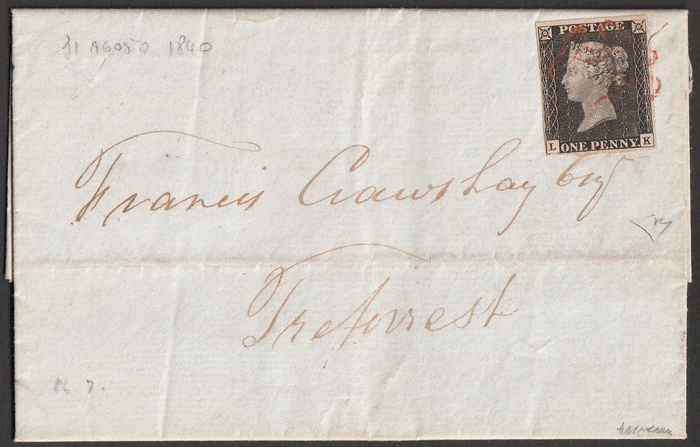 31 AGOSTO 1840
POSTAGE
L K
ONE PENNY
Francis Crawshay Esqr
Treforrest
7.